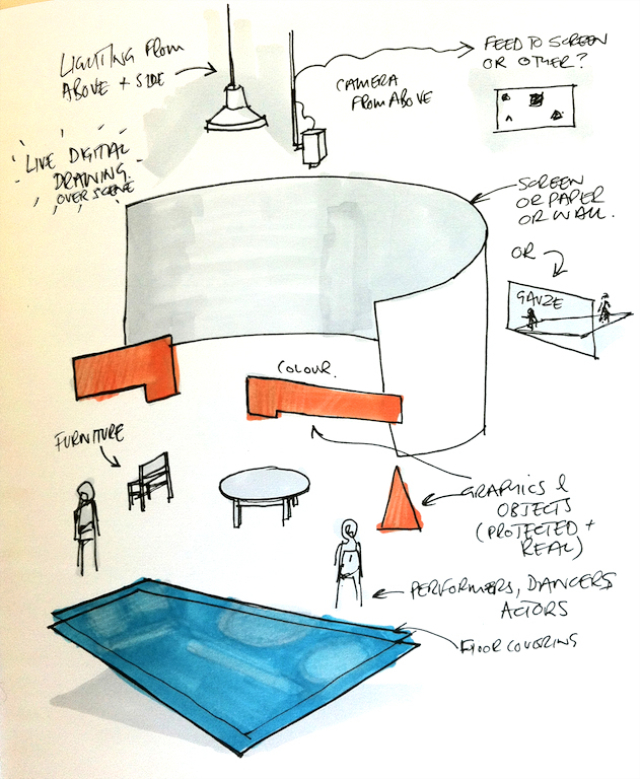 LIGHTING FROM
ABOVE + SIDE
FEED TO SCREEN
OR OTHER?
CAMERA
FROM ABOVE
LIVE DIGITAL
DRAWING
OVER SCENE
SCREEN
OR PAPER
OR WALL.
OR
GAUZE
COLOUR.
FURNITURE
GRAPHICS &
OBJECTS
(PROTECTED +
REAL)
PERFORMERS, DANCERS
ACTORS
FLOOR COVERING